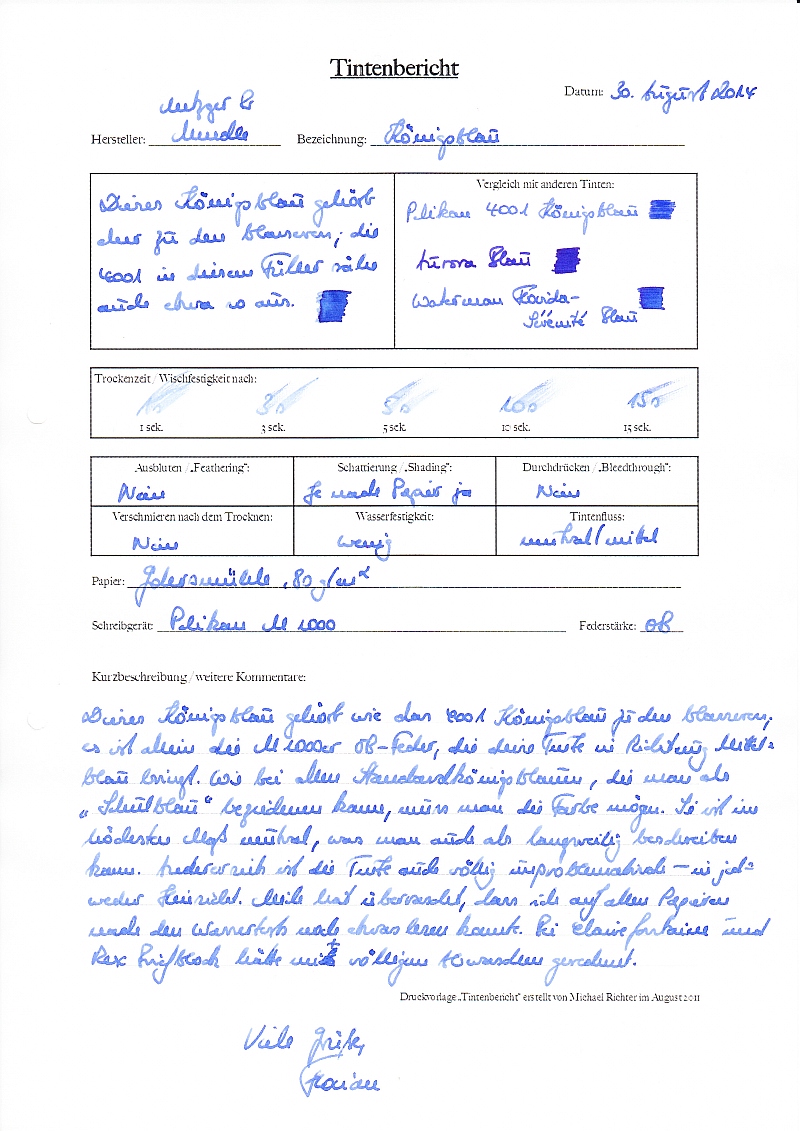 Tintenbericht
Datum: 30. August 2014
Hersteller: Metzger &
Mendle
Bezeichnung: Königsblau
Dieses Königsblau gehört
eher zu den blauseren; die
4001 in diesem Füller sähe
auch etwa so aus.
Vergleich mit anderen Tinten:
Pelikan 4001 Königsblau
Aurora Blau
Waterman Florida-
Sérénité Blau
Trockenzeit / Wischfestigkeit nach:
1s 3s 5s 10s 15s
1 sek. 3 sek. 5 sek. 10 sek. 15 sek.
Ausbluten / „Feathering": Schattierung / „Shading": Durchdrücken / „Bleedthrough":
Nein Je nach Papier ja Nein
Verschmieren nach dem Trocknen: Wasserfestigkeit: Tintenfluss:
Nein wenig neutral/mittel
Papier: , 80 g/m²
Schreibgerät: Pelikan M 1000 Federstärke: OB
Kurzbeschreibung / weitere Kommentare:
Dieses Königsblau gehört wie das 4001 Königsblau zu den blasseren,
es ist allein die M1000er OB-Feder, die diese Tinte in Richtung Mittel=
blau bringt. Wie bei allen Standardkönigsblauen, die man als
„Schulblau" bezeichnen kann, muss man die Farbe mögen. Sie ist im
höchsten Maß neutral, was man auch als langweilig beschreiben
kann. Andererseits ist die Tinte auch völlig unproblematisch – in jed=
weder Hinsicht. Mich hat überrascht, dass ich auf allen Papieren
nach dem Wassertest noch etwas lesen konnte. Bei Clairefontaine und
Rex Briefblock hätte mit völligem Abwaschen gerechnet.
Druckvorlage „Tintenbericht" erstellt von Michael Richter im August 2011
Viele Grüße,
Florian